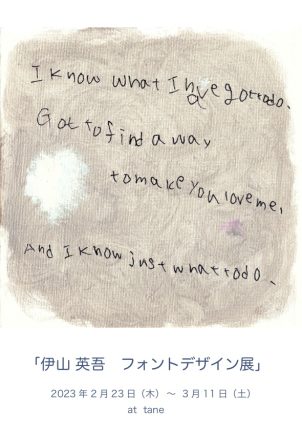 I know what I have gottodo.
Got to find a way
to make you love me,
And I know just what to do.
「伊山 英吾　フォントデザイン展」
2023年2月23日（木）～ 3月11日（土）
at tane